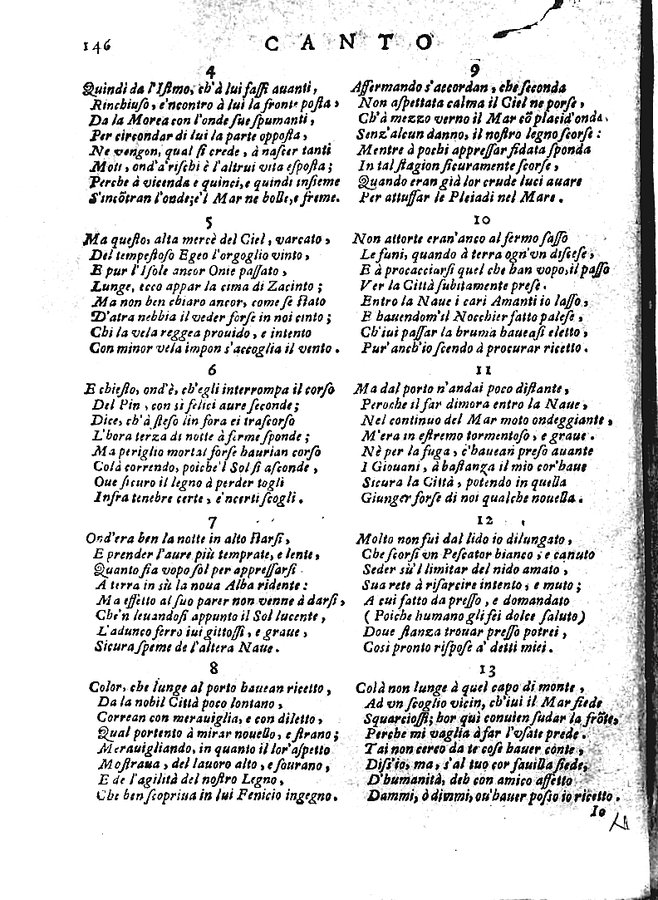 146
CANTO
4
Quindi da l'Istmo, ch'à lui fassi auanti,
Rinchiuso, e'ncontro à lui la fronte posta,
Da la Morea con l'onde sue spumanti,
Per circondar di lui la parte opposta,
Ne vengon, qual si crede, à nascer tanti
Moti, ond'a'rischi è l'altrui vita esposta;
Perche à vicenda e quinci, e quindi insieme
S'incõtran l'onde; e'l Mar ne bolle, e freme.
5
Ma questo, alta mercè del Ciel, varcato,
Del tempestoso Egeo l'orgoglio vinto,
E pur l'Isole ancor Onie passato,
Lunge, ecco appar la cima di Zacinto;
Ma non ben chiaro ancor, come se stato
D'atra nebbia il veder forse in noi cinto;
Chi la vela reggea prouido, e intento
Con minor vela impon s'accoglia il vento.
6
E chiesto, ond'è, ch'egli interrompa il corso
Del Pin, con sì felici aure seconde;
Dice, ch'à steso lin fora ei trascorso
L'hora terza di notte à ferme sponde;
Ma periglio mortal forse haurian corso
Colà correndo, poiche'l Sol si asconde,
Oue sicuro il legno à perder togli
Infra tenebre certe, e'ncerti scogli.
7
Ond'era ben la notte in alto starsi,
E prender l'aure più temprate, e lente,
Quanto sia vopo sol per appressarsi
A terra in sù la noua Alba ridente:
Ma effetto al suo parer non venne à darsi,
Che'n leuandosi appunto il Sol lucente,
L'adunco ferro iui gittossi, e graue,
Sicura speme de l'altera Naue.
8
Color, che lunge al porto hauean ricetto,
Da la nobil Città poco lontano,
Correan con merauiglia, e con diletto,
Qual portento à mirar nouello, e strano;
Merauigliando, in quanto il lor'aspetto
Mostraua, del lauoro alto, e sourano,
E de l'agilità del nostro Legno,
Che ben scopriua in lui Fenicio ingegno.
9
Affermando s'accordan, che seconda
Non aspettata calma il Ciel ne porse,
Ch'à mezzo verno il Mar cõ placid'onda,
Senz'alcun danno, il nostro legno scorse:
Mentre à pochi appressar fidata sponda
In tal stagion sicuramente scorse,
Quando eran già lor crude luci auare
Per attuffar le Pleiadi nel Mare.
10
Non attorte eran'anco al fermo sasso
Le funi, quando à terra ogn'vn discese,
E à procacciarsi quel che han vopo, il passo
Ver la Città subitamente prese.
Entro la Naue i cari Amanti io lasso,
E hauendom'il Nocchier fatto palese,
Ch'iui passar la bruma haueasi eletto,
Pur'anch'io scendo à procurar ricetto.
11
Ma dal porto n'andai poco distante,
Peroche il far dimora entro la Naue,
Nel continuo del Mar moto ondeggiante,
M'era in estremo tormentoso, e graue.
Nè per la fuga, c'hauean preso auante
I Giouani, à bastanza il mio cor'haue
Sicura la Città, potendo in quella
Giunger forse di noi qualche nouella.
12
Molto non fui dal lido io dilungato,
Che scorsi vn Pescator bianco, e canuto
Seder sù'l limitar del nido amato,
Sua rete à risarcire intento, e muto;
A cui fatto da presso, e domandato
(Poiche humano gli fei dolce saluto)
Doue stanza trouar presso potrei,
Così pronto rispose a' detti miei.
13
Colà non lunge à quel capo di monte,
Ad vn scoglio vicin, ch'iui il Mar fiede
Squarciossi; hor qui conuien sudar la frõte,
Perche mi vaglia à far l'vsate prede.
Tai non cerco da te cose hauer conte,
Diss'io, ma, s'al tuo cor fauilla siede,
D'humanità, deh con amico affetto
Dammi, ò dimmi, ou'hauer posso io ricetto.
Io